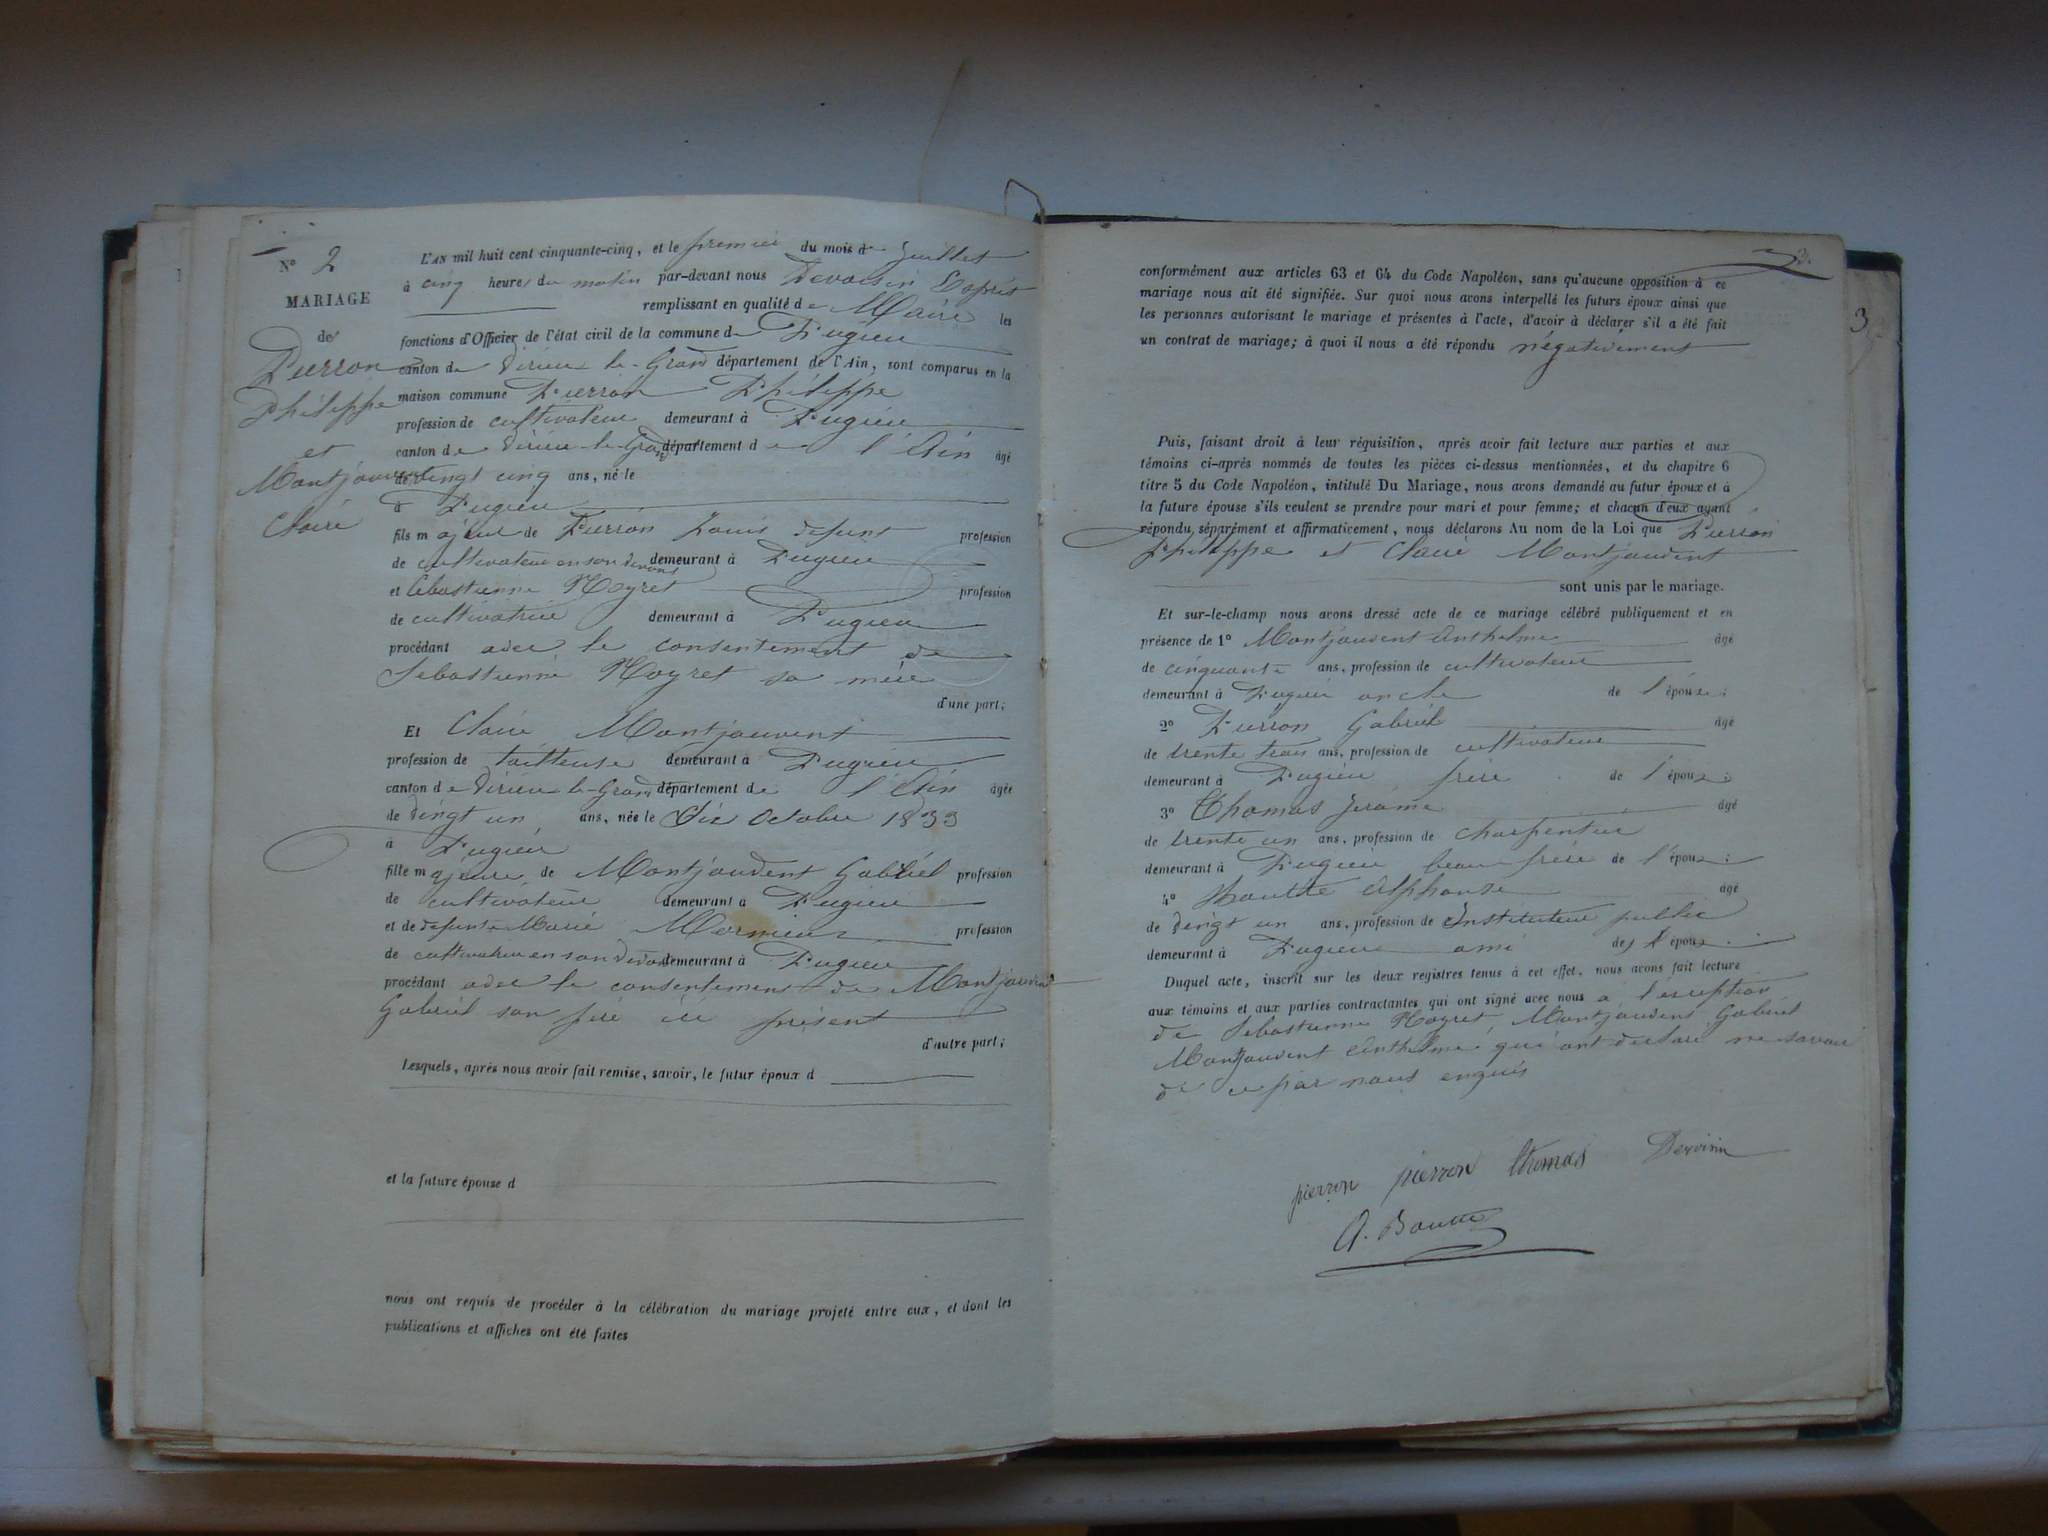 N° 2
MARIAGE
de
Pierron
Philippe
et
Montjouvent
Claire
L'AN mil huit cent cinquante-cinq, et le premier du mois de Juillet
à cinq heures du matin par-devant nous
remplissant en qualité de Maire les
fonctions d'Officier de l'état civil de la commune de Pugieu
canton de Virieu-le-Grand département de l'Ain, sont comparus en la
maison commune Pierron Philippe
profession de cultivateur demeurant à Pugieu
canton de Virieu-le-Grand département de l'Ain âgé
de vingt cinq ans, né le
à Pugieu
fils majeur de Pierron Louis défunt profession
de cultivateur en son vivant demeurant à Pugieu
et Sébastienne Moyret profession
de cultivatrice demeurant à Pugieu
procédant avec le consentement de
Sébastienne Moyret sa mère
d'une part;
Et Claire Montjouvent
profession de tailleuse demeurant à Pugieu
canton de Virieu-le-Grand département de l'Ain âgée
de vingt un ans, née le Six Octobre 1833
à Pugieu
fille majeure de Montjouvent Gabriel profession
de cultivateur demeurant à Pugieu
et de défunte Marie profession
de cultivatrice en son vivant demeurant à Pugieu
procédant avec le consentement de Montjouvent
Gabriel son père ici présent
d'autre part;
Lesquels, après nous avoir fait remise, savoir, le futur époux d
et la future épouse d
nous ont requis de procéder à la célébration du mariage projeté entre eux, et dont les
publications et affiches ont été faites
3.
3
conformément aux articles 63 et 64 du Code Napoléon, sans qu'aucune opposition à ce
mariage nous ait été signifiée. Sur quoi nous avons interpellé les futurs époux ainsi que
les personnes autorisant le mariage et présentes à l'acte, d'avoir à déclarer s'il a été fait
un contrat de mariage; à quoi il nous a été répondu négativement
Puis, faisant droit à leur réquisition, après avoir fait lecture aux parties et aux
témoins ci-après nommés de toutes les pièces ci-dessus mentionnées, et du chapitre 6
titre 5 du Code Napoléon, intitulé Du Mariage, nous avons demandé au futur époux et à
la future épouse s'ils veulent se prendre pour mari et pour femme; et chacun d'eux ayant
répondu séparément et affirmativement, nous déclarons Au nom de la Loi que Pierron
Philippe et Claire Montjouvent
sont unis par le mariage.
Et sur-le-champ nous avons dressé acte de ce mariage célébré publiquement et en
présence de 1° Montjouvent Anthelme âgé
de cinquante ans, profession de cultivateur
demeurant à Pugieu oncle de l'épouse;
2° Pierron Gabriel âgé
de trente trois ans, profession de cultivateur
demeurant à Pugieu frère de l'époux;
3° Thomas Jérôme âgé
de trente un ans, profession de charpentier
demeurant à Pugieu beau frère de l'époux;
4° Boutte Alphonse âgé
de vingt un ans, profession de Instituteur public
demeurant à Pugieu ami de l'époux.
Duquel acte, inscrit sur les deux registres tenus à cet effet, nous avons fait lecture
aux témoins et aux parties contractantes qui ont signé avec nous à l'exception
de Sébastienne Moyret, Montjouvent Gabriel
Montjouvent Anthelme qui ont déclaré ne savoir
de ce par nous enquis
pierron pierron thomas